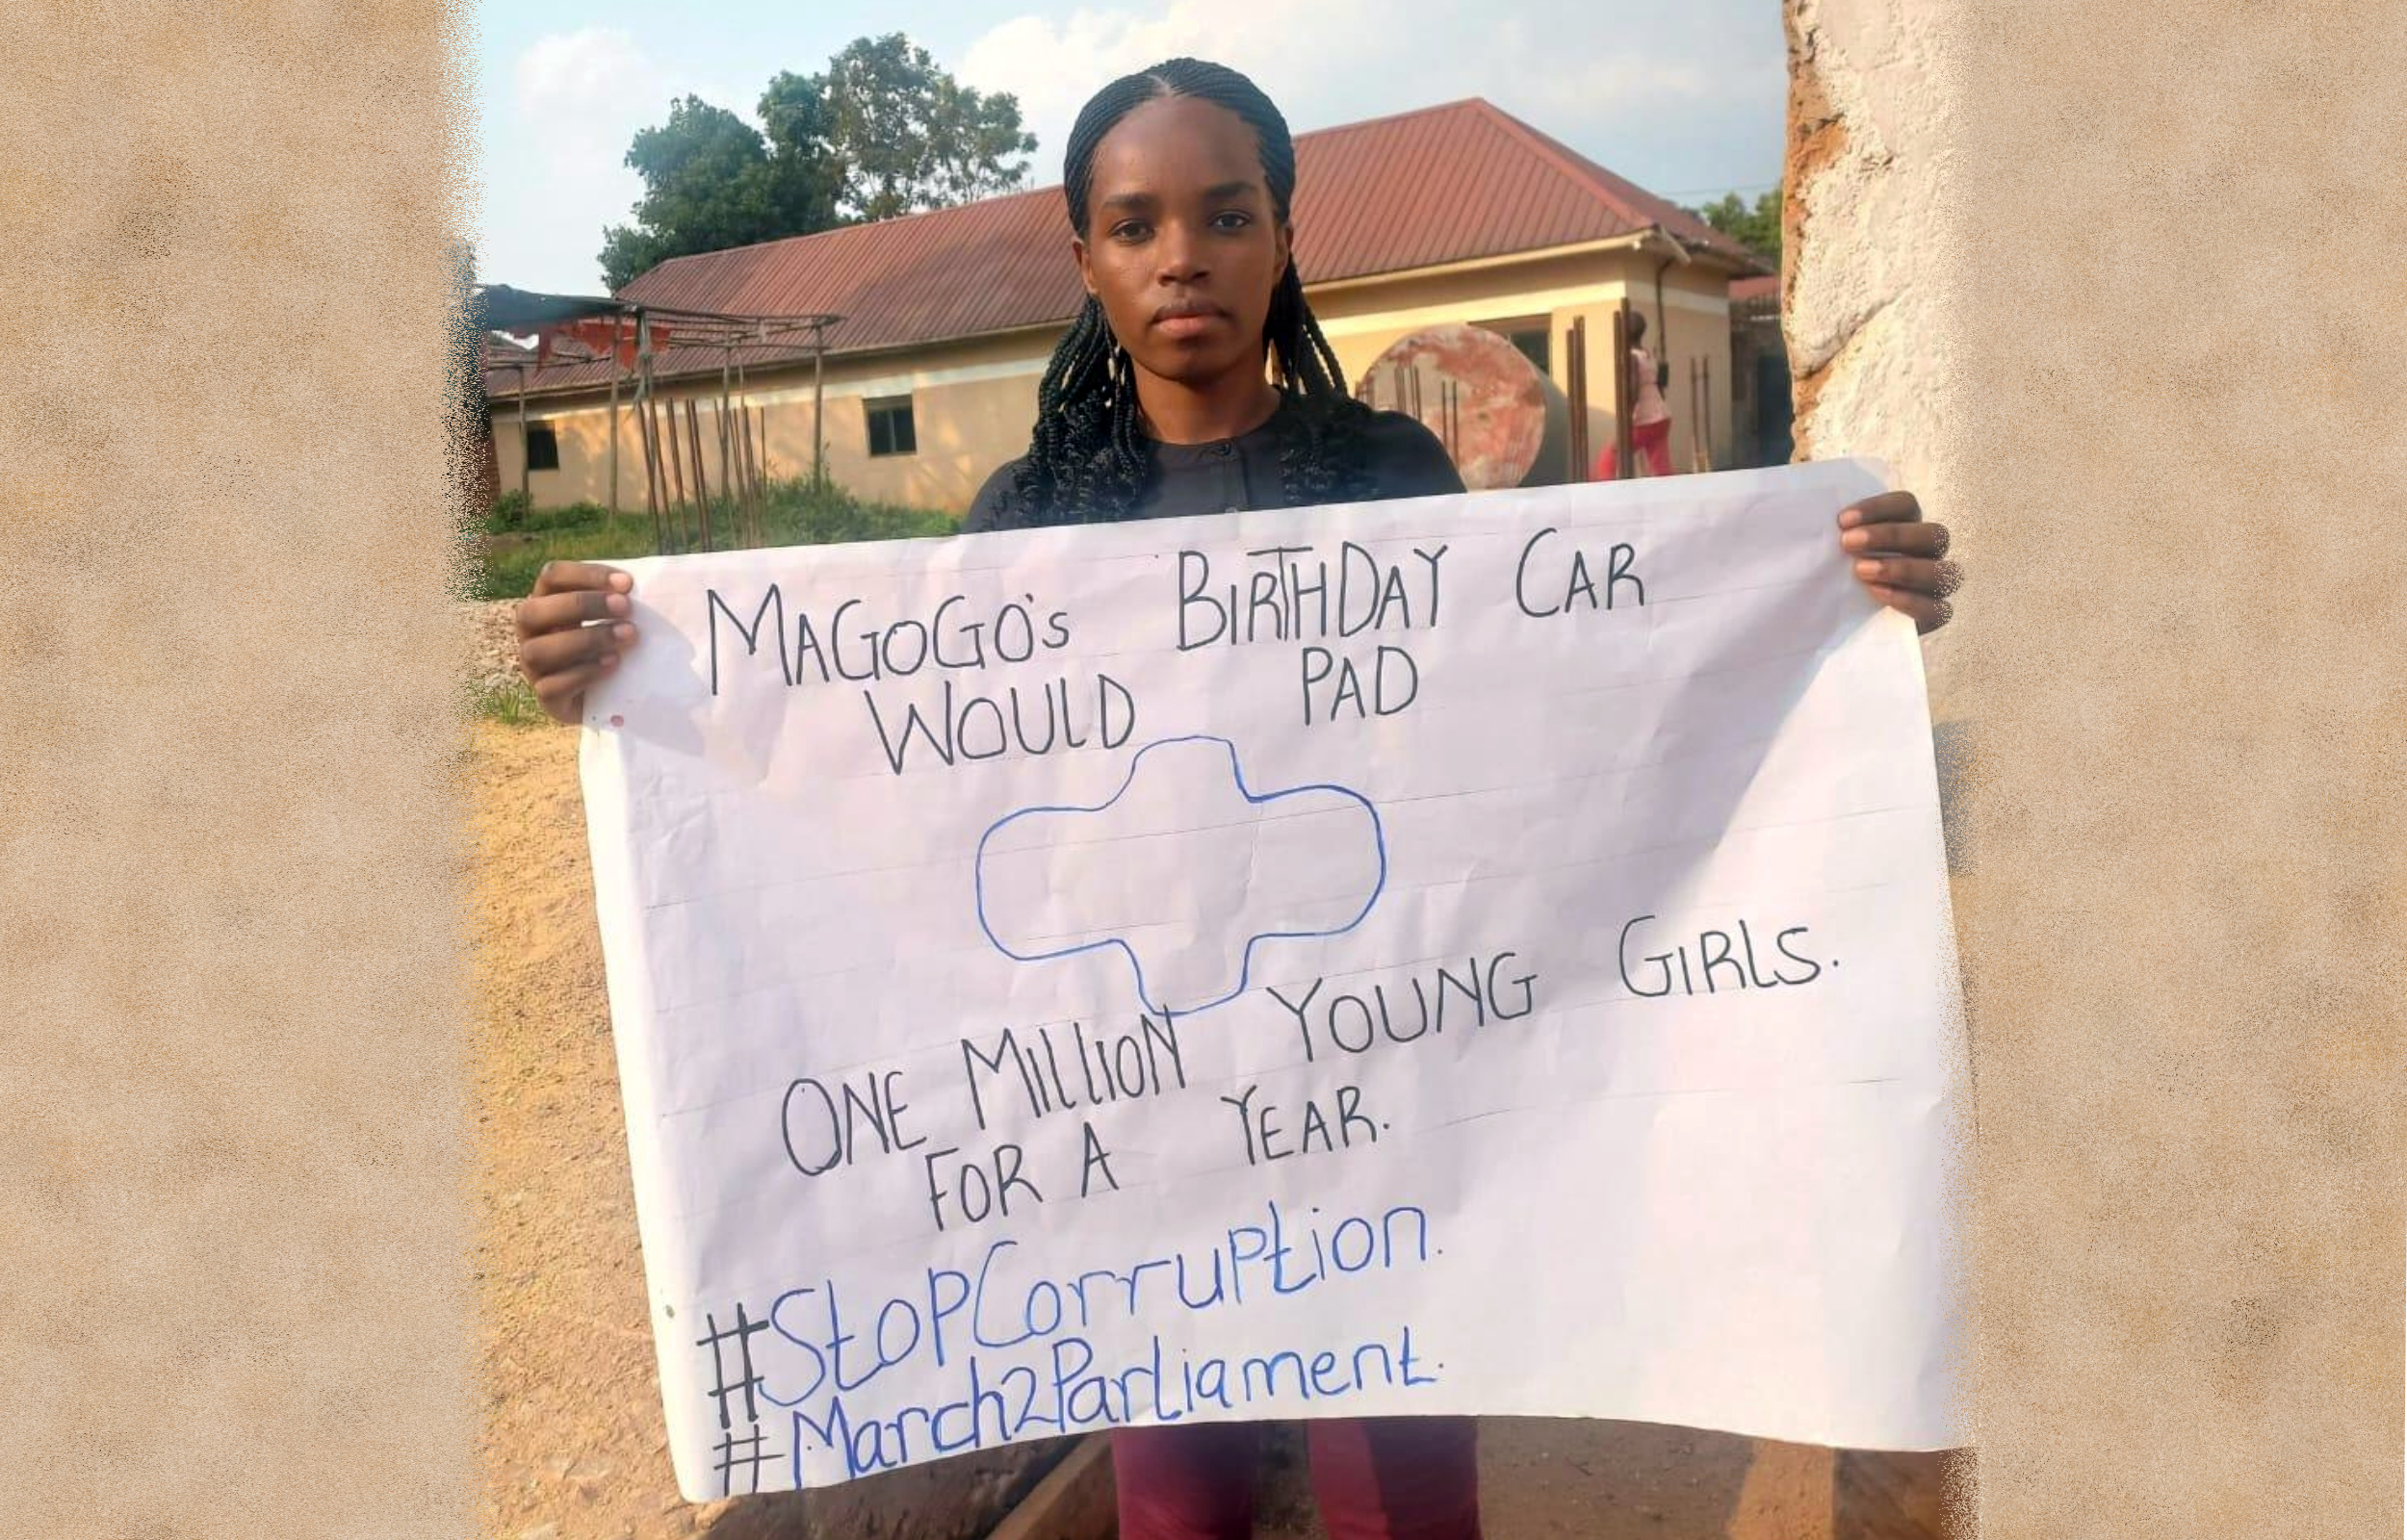 MAGOGO's BIRTHDAY CAR
WOULD PAD
ONE MILLION YOUNG GIRLS.
FOR A YEAR.
#StopCorruption.
#March2Parliament.